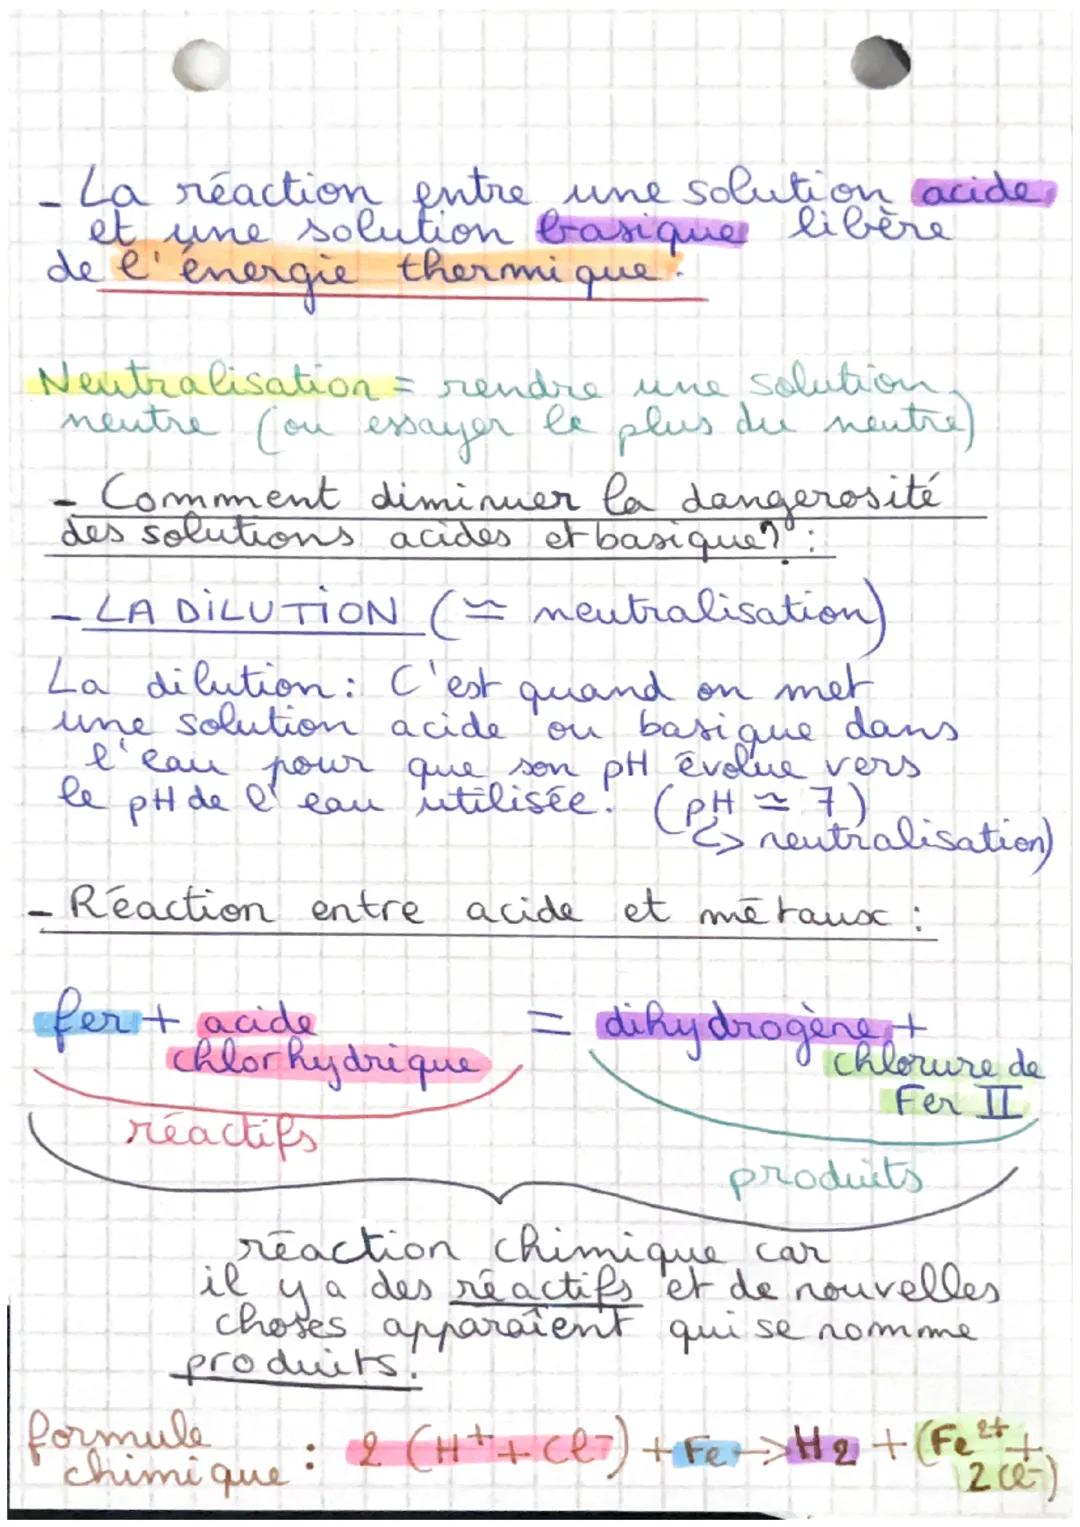 - La réaction entre une solution acide
et une solution basique libère
de l'énergie thermique.
Neutralisation = rendre une solution
neutre (ou essayer le plus du neutre)
- Comment diminuer la dangerosité
des solutions acides et basique? :
- LA DILUTION (≃ neutralisation)
La dilution : C'est quand on met
une solution acide ou basique dans
l'eau pour que son pH évolue vers
le pH de l'eau utilisée. (pH ≃ 7)
↳ neutralisation)
- Réaction entre acide et métaux :
fer + acide
chlorhydrique
= dihydrogène +
chlorure de
Fer II
réactifs
produits
réaction chimique car
il y a des réactifs et de nouvelles
choses apparaîent qui se nomme
produits.
formule
chimique : 2 (H⁺ + Cl⁻) + Fe → H₂ + (Fe²⁺ +
2 Cl⁻)